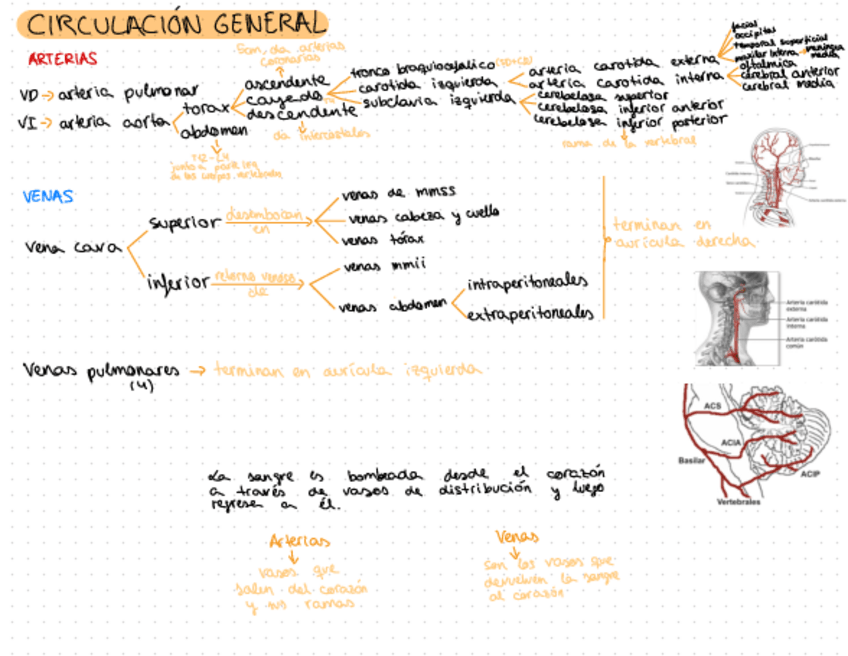 CIRCULACIÓN GENERAL
ARTERIAS
Son, da arterias
coronarias
VD → arteria pulmonar
VI → arteria aorta
torax
abdomen
ascendente
cayado
descendente
da intercostales
T12-L4
tronco braquiocefalico
carotida izquierda
subclavia izquierda
arteria carotida externa
arteria carotida interna
cerebelosa superior
cerebelosa inferior anterior
cerebelosa inferior posterior
rama de la vertebral
facial
occipital
temporal superficial
maxilar interna → meningea
media
oftalmica
cerebral anterior
cerebral media
VENAS
vena cava
superior
desembocan
en
venas de mmss
venas cabeza y cuello
venas tórax
inferior
retorno venoso
de
venas mmii
venas abdomen
intraperitoneales
extraperitoneales
terminan en
aurícula derecha
Arteria carótida
externa
Arteria carótida
interna
Arteria carótida
común
Venas pulmonares → terminan en aurícula izquierda
(4)
ACS
ACIA
Basilar
ACIP
Vertebrales
La sangre es bombeada desde el corazón
a través de vasos de distribución y luego
regresa a él.
Arterias
vasos que
salen del corazón
y sus ramas
Venas
Son los vasos que
devuelven la sangre
al corazón